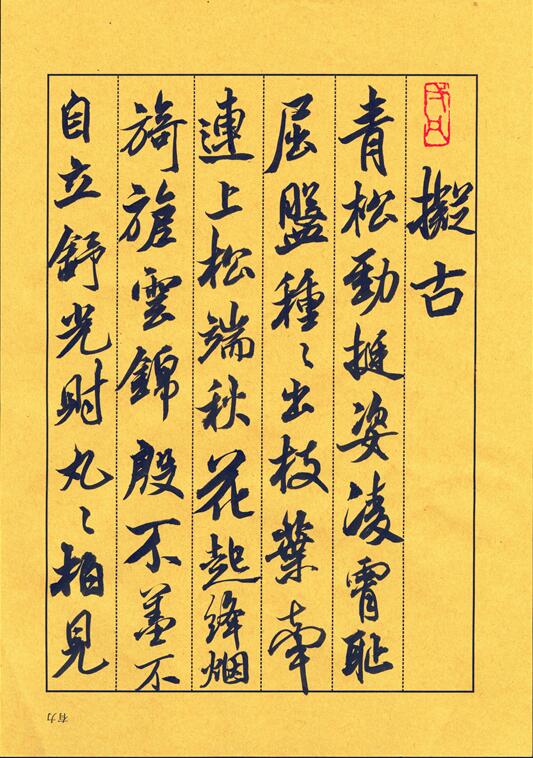 擬古
青松勁挺姿凌霄耻
屈盤種〻出枝葉牽
連上松端秋花起絳烟
旖旎雲錦殷不羞不
自立舒光射丸〻柏見
有力